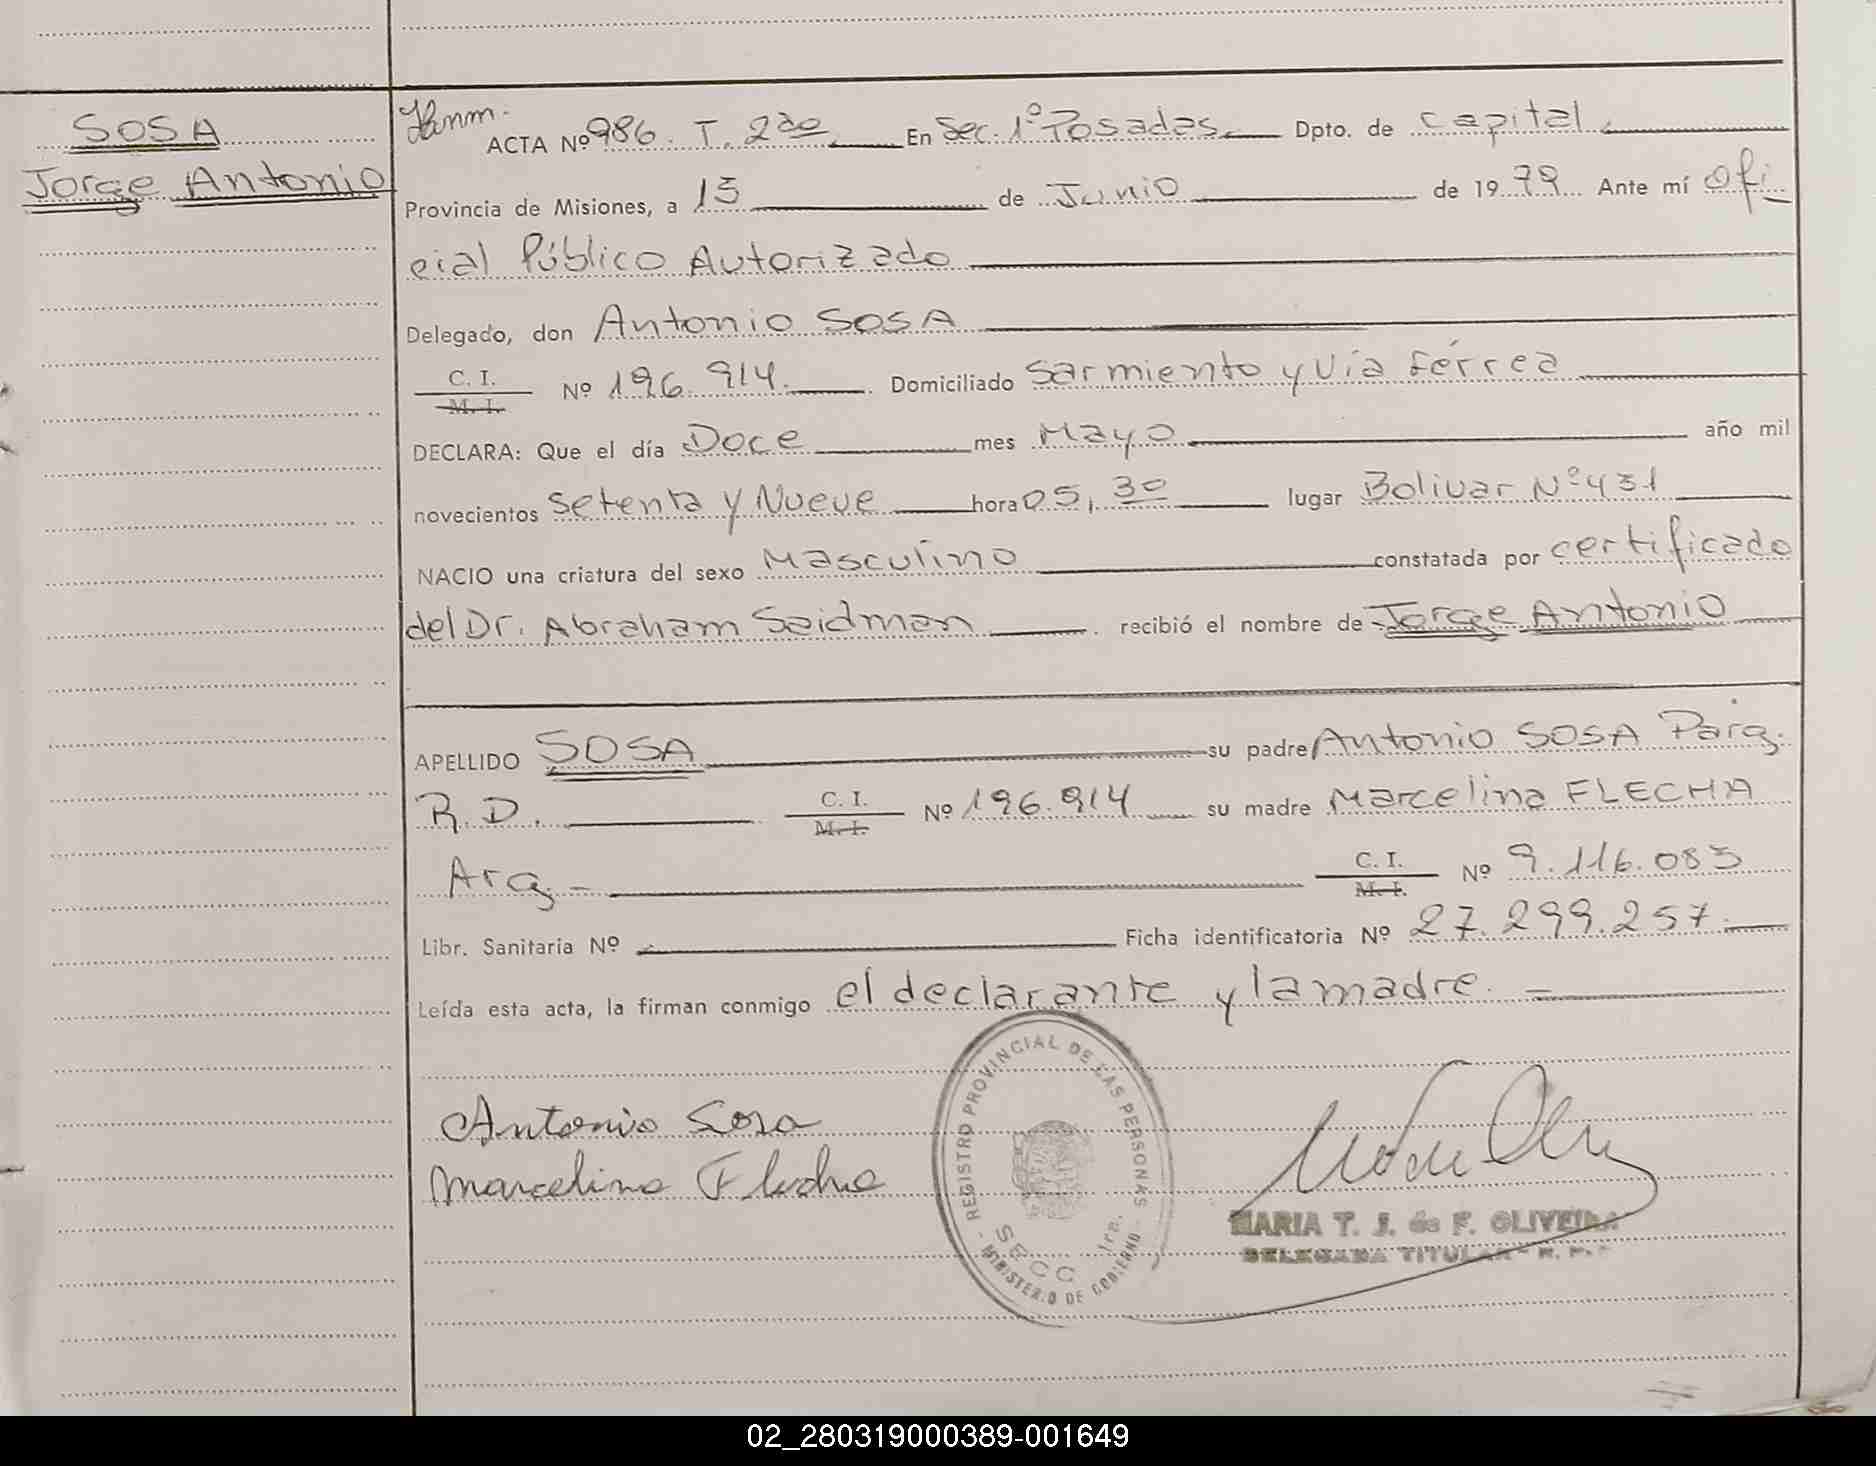 SOSA
Jorge Antonio
ACTA Nº 986. T. 2do. En Sec. 1º Posadas. Dpto. de Capital.
Provincia de Misiones, a 15 de Junio de 1979 Ante mí Ofi
cial Público Autorizado
Delegado, don Antonio SOSA
C. I. M. I. Nº 196.914. Domiciliado Sarmiento y Vía Férrea
DECLARA: Que el día Doce mes Mayo año mil
novecientos Setenta y Nueve hora 05,30 lugar Bolivar Nº 431
NACIO una criatura del sexo Masculino constatada por certificado
del Dr. Abraham Seidman recibió el nombre de Jorge Antonio
APELLIDO SOSA su padre Antonio SOSA Parg.
R.D. C. I. M. I. Nº 196.914 su madre Marcelina FLECHA
Arg. - C. I. M. I. Nº 9.116.085
Libr. Sanitaria Nº Ficha identificatoria Nº 27.299.257.
Leída esta acta, la firman conmigo el declarante y la madre. -
Antonio Sosa
Marcelina Flecha
- REGISTRO PROVINCIAL DE LAS PERSONAS -
SECC 1ra.
MINISTERIO DE GOBIERNO
MARIA T. J. de F. OLIVEIRA
DELEGADA TITULAR - R. P.
02_280319000389-001649